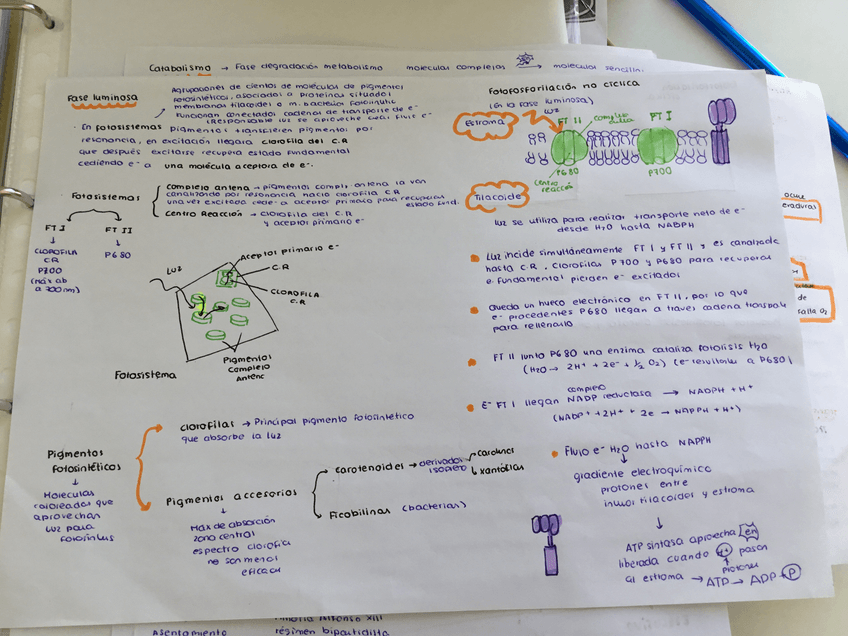 Catabolismo → Fase degradación metabolismo moleculas complejas → moleculas sencillas
Fase luminosa
Agrupaciones de cientos de moleculas de pigmentos
fotosintéticos, asociados a proteinas situadas
membrana tilacoides o m. bacterias fotosinte
Funcionan conectados cadenas de transporte de e-
(Responsable luz se aproveche
• En fotosistemas pigmentos transfieren pigmentos por
resonancia, en excitación llegara clorofila del C.R
que después excitarse recupera estado fundamental
cediendo e- a una molécula aceptora de e-.
Fotosistemas
Complejo antena → pigmentos compl. antena la van
canalizando por resonancia hacia clorofila C.R
una vez excitado cede e- a aceptor primario para recuperar
estado fund.
Centro Reacción → clorofila del C.R
y aceptor primario e-
FT I
FT II
↓
CLOROFILA
C.R
P700
(Máx ab
a 700nm)
↓
P680
Aceptor primario e-
C.R
LUZ
CLOROFILA
C.R
Pigmentos
Complejo
Antenc
Fotosistema
Pigmentos
fotosintéticos
↓
Moleculas
coloreadas que
aprovechan
luz para
fotosíntesis
clorofilas → Principal pigmento fotosintético
que absorbe la luz
Pigmentos accesorios
↓
Máx de absorción
zona central
espectro clorofila
no son menos
eficaces
carotenoides → derivados
isopreno
carotenos
xantófilas
Ficobilinas (bacterias)
Fotofosforilación no cíclica
(En la fase luminosa)
Estroma
luz
FT II
complejo
antena
FT I
P680
P700
centro
reacción
Tilacoide
luz se utiliza para realizar transporte neto de e-
desde H2O hasta NADPH
• Luz incide simultáneamente FT I y FT II y es canalizada
hasta C.R. Clorofilas P700 y P680 para recuperar
e.fundamental pierden e- excitados
• Queda un hueco electrónico en FT II, por lo que
e- procedentes P680 llegan a traves cadena transporte
para rellenarlo
• FT II junto P680 una enzima cataliza fotolisis H2O
(H2O → 2H+ + 2e- + 1/2 O2) (e- resultantes a P680)
• E- FT I llegan complejo NADP reductasa → NADPH + H+
(NADP+ + 2H+ + 2e → NADPH + H+)
• Flujo e- H2O hasta NADPH
↓
gradiente electroquímico
protones entre
tilacoides y estroma
↓
ATP sintasa aprovecha en
liberada cuando H+ pasan
↑
protones
al estroma → ATP → ADP + P
ocurre
de
Alfonso XIII
Asentamiento
régimen bipartidista